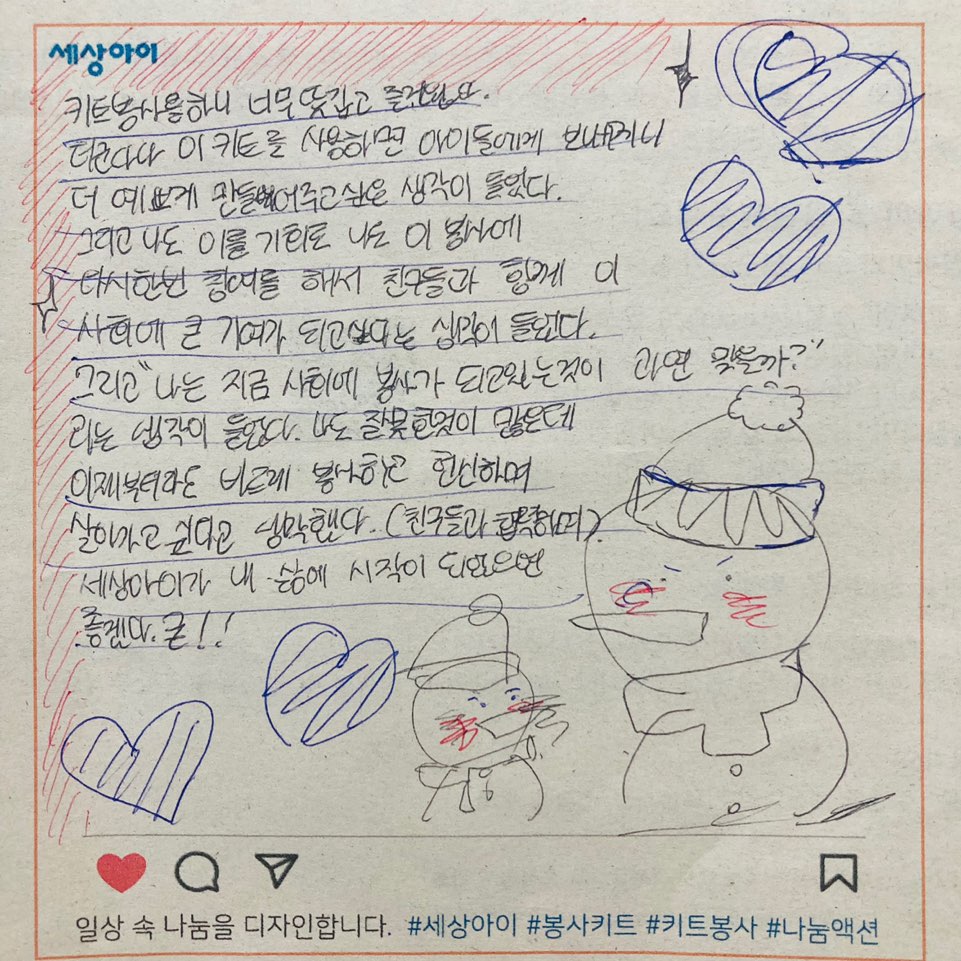 세상아이
키트봉사를하니 너무 뜻깊고 즐거웠다.
이 키트를 사용하면 아이들에게 보내지니
더 예쁘게 만들어주고싶은 생각이 들었다.
그리고 나도 이를 기회로 나도 이 봉사에
다시한번 참여를 해서 친구들과 함께 이
사회에 큰 기여가 되고싶다는 생각이 들었다.
그리고 "나는 지금 사회에 봉사가 되고있는것이 과연 맞을까?"
라는 생각이 들었다. 나도 잘못한것이 많은데
이제부터라도 바르게 봉사하고 헌신하며
살아가고 싶다고 생각했다. (친구들과 협동하며).
세상아이가 내 삶에 시작이 되었으면
좋겠다. 끝!!
일상 속 나눔을 디자인합니다. #세상아이 #봉사키트 #키트봉사 #나눔액션